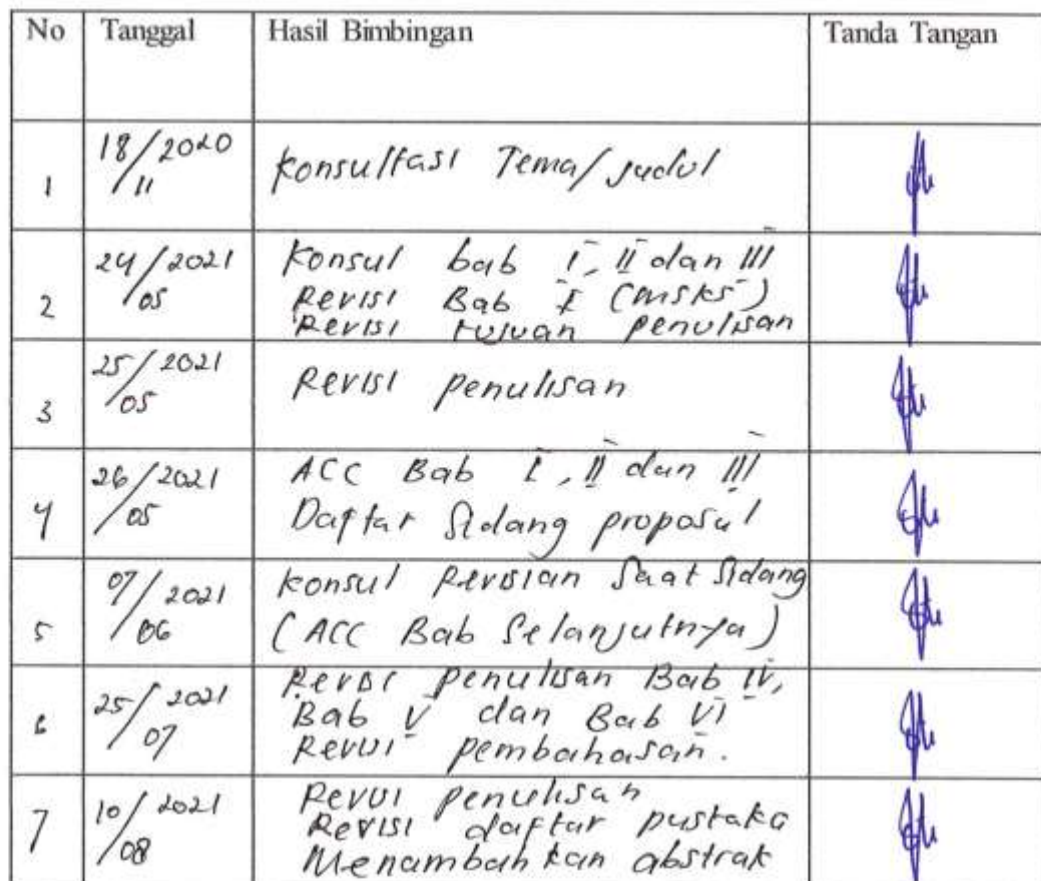 No Tanggal Hasil Bimbingan Tanda Tangan
1 18/11 2020 Konsultasi Tema/Judul
2 24/05 2021 Konsul bab I, II dan III
Revisi Bab I (MSKS)
Revisi tujuan penulisan
3 25/05 2021 Revisi penulisan
4 26/05 2021 ACC Bab I, II dan III
Daftar Sidang proposal
5 07/06 2021 Konsul Revisian Saat Sidang
(ACC Bab Selanjutnya)
6 25/07 2021 Revisi penulisan Bab IV,
Bab V dan Bab VI
Revisi pembahasan.
7 10/08 2021 Revisi penulisan
Revisi daftar pustaka
Menambahkan abstrak